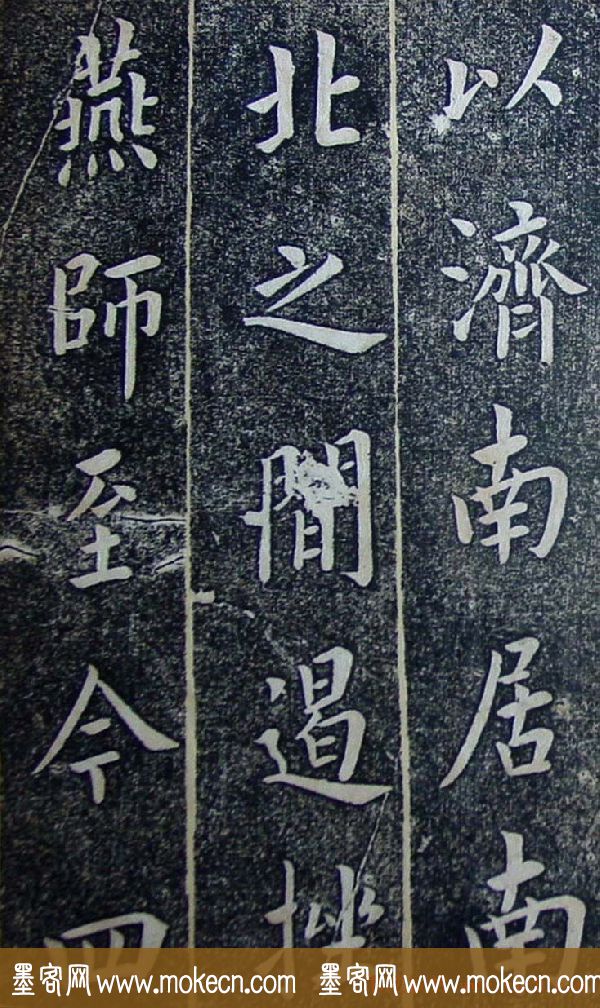 以濟南居南
北之間遏挫
燕師至今四
墨客网 www.mokecn.com 墨客网 www.mokecn.com